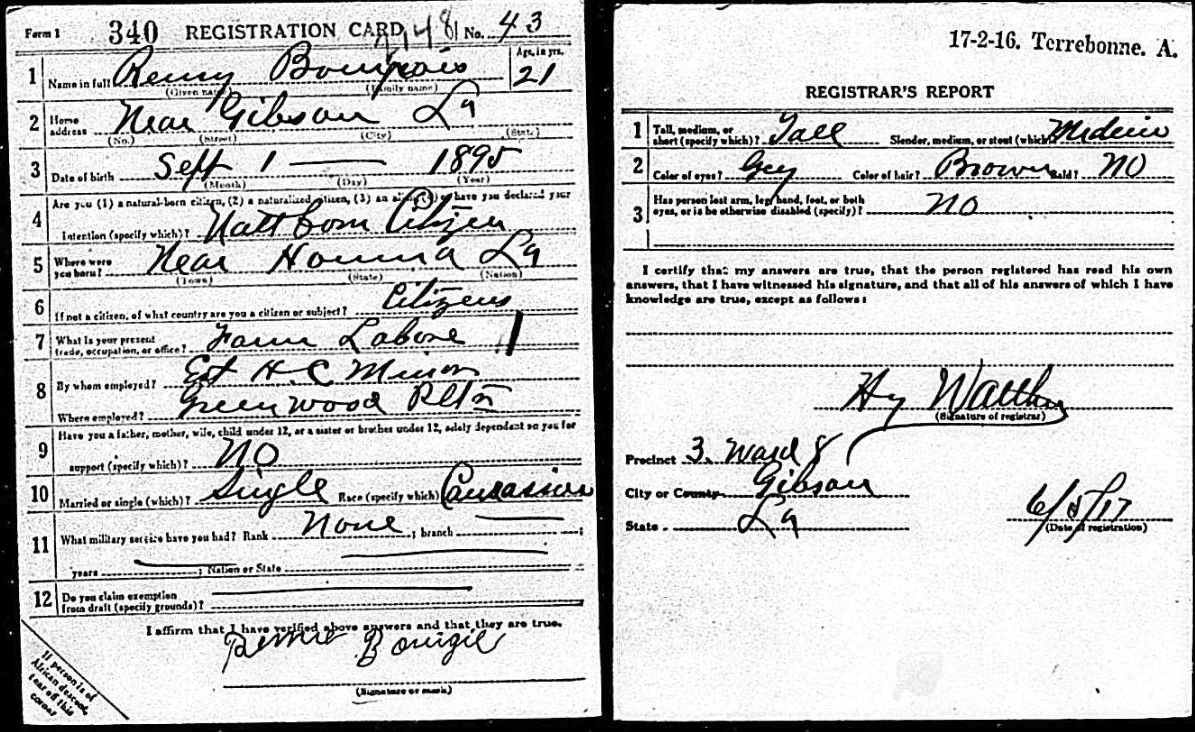 Form 1 340 REGISTRATION CARD No. 43
1 Name in full Remy Bourgeois Age, in yrs. 21
(Given name) (Family name)
2 Home address Near Gibson La
(No.) (Street) (City) (State)
3 Date of birth Sept 1 1895
(Month) (Day) (Year)
4 Are you (1) a natural-born citizen, (2) a naturalized citizen, (3) an alien, (4) or have you declared your
intention (specify which)? Natt born Citizen
5 Where were you born? Near Houma La
(Town) (State) (Nation)
6 If not a citizen, of what country are you a citizen or subject? Citizens
7 What is your present trade, occupation, or office? Farm Labore 1
8 By whom employed? Est H. C Minor
Where employed? Greenwood Pltn
9 Have you a father, mother, wife, child under 12, or a sister or brother under 12, solely dependent on you for
support (specify which)? NO
10 Married or single (which)? Single Race (specify which)? Caucassion
11 What military service have you had? Rank None ; branch ;
years ; Nation or State
12 Do you claim exemption from draft (specify grounds)?
I affirm that I have verified above answers and that they are true.
(Signature or mark)
If person is of
African descent,
tear off this
corner
17-2-16. Terrebonne. A.
REGISTRAR'S REPORT
1 Tall, medium, or short (specify which)? Tall Slender, medium, or stout (which)?
2 Color of eyes? Grey Color of hair? Brown Bald? NO
3 Has person lost arm, leg, hand, foot, or both
eyes, or is he otherwise disabled (specify)? NO
I certify that my answers are true, that the person registered has read his own
answers, that I have witnessed his signature, and that all of his answers of which I have
knowledge are true, except as follows:
Hy
(Signature of registrar)
Precinct 3. Ward 8
City or County Gibson
State La
6/5/17
(Date of registration)